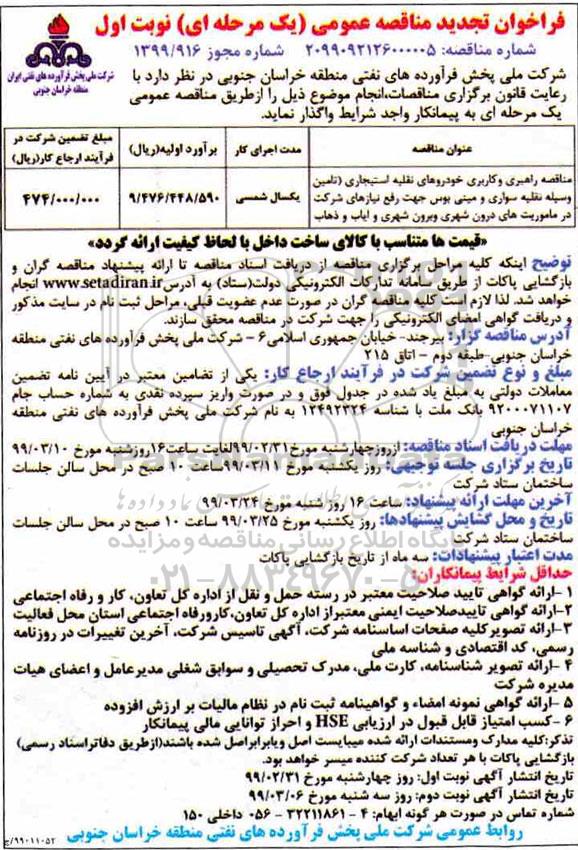 فراخوان تجدید مناقصه عمومی (یک مرحله ای) نوبت اول
شماره مناقصه: ۲۰۹۹۰۹۲۱۲۶۰۰۰۰۰۵ شماره مجوز ۱۳۹۹/۹۱۶
شرکت ملی پخش فرآورده های نفتی ایران
منطقه خراسان جنوبی
شرکت ملی پخش فرآورده های نفتی منطقه خراسان جنوبی در نظر دارد با
رعایت قانون برگزاری مناقصات،انجام موضوع ذیل را ازطریق مناقصه عمومی
یک مرحله ای به پیمانکار واجد شرایط واگذار نماید.
عنوان مناقصه
مدت اجرای کار
برآورد اولیه(ریال)
مبلغ تضمین شرکت در
فرآیند ارجاع کار(ریال)
مناقصه راهبری وکاربری خودروهای نقلیه استیجاری (تامین
وسیله نقلیه سواری و مینی بوس جهت رفع نیازهای شرکت
در ماموریت های درون شهری وبرون شهری و ایاب و ذهاب
یکسال شمسی
۹/۴۷۶/۴۴۸/۵۹۰
۴۷۴/۰۰۰/۰۰۰
«قیمت ها متناسب با کالای ساخت داخل با لحاظ کیفیت ارائه گردد»
توضیح اینکه کلیه مراحل برگزاری مناقصه از دریافت اسناد مناقصه تا ارائه پیشنهاد مناقصه گران و
بازگشایی پاکات از طریق سامانه تدارکات الکترونیکی دولت(ستاد) به آدرس www.setadiran.ir انجام
خواهد شد. لذا لازم است کلیه مناقصه گران در صورت عدم عضویت قبلی، مراحل ثبت نام در سایت مذکور
و دریافت گواهی امضای الکترونیکی را جهت شرکت در مناقصه محقق سازند.
آدرس مناقصه گزار: بیرجند- خیابان جمهوری اسلامی۶ - شرکت ملی پخش فرآورده های نفتی منطقه
خراسان جنوبی -طبقه دوم - اتاق ۲۱۵
مبلغ و نوع تضمین شرکت در فرآیند ارجاع کار: یکی از تضامین معتبر در آیین نامه تضمین
معاملات دولتی به مبلغ یاد شده در جدول فوق و در صورت واریز سپرده نقدی به شماره حساب جام
۹۲۰۰۰۷۱۱۰۷ بانک ملت با شناسه ۱۳۴۹۲۳۲۴ به نام شرکت ملی پخش فرآورده های نفتی منطقه
خراسان جنوبی
مهلت دریافت اسناد مناقصه: ازروزچهارشنبه مورخ۹۹/۰۲/۳۱لغایت ساعت۱۶روزشنبه مورخ ۹۹/۰۳/۱۰
تاریخ برگزاری جلسه توجیهی: روز یکشنبه مورخ ۹۹/۰۳/۱۱ساعت ۱۰ صبح در محل سالن جلسات
ساختمان ستاد شرکت
آخرین مهلت ارائه پیشنهاد: ساعت ۱۶ روز شنبه مورخ ۹۹/۰۳/۲۴
تاریخ و محل گشایش پیشنهادها: روز یکشنبه مورخ ۹۹/۰۳/۲۵ ساعت ۱۰ صبح در محل سالن جلسات
ساختمان ستاد شرکت
مدت اعتبار پیشنهادات: سه ماه از تاریخ بازگشایی پاکات
حداقل شرایط پیمانکاران:
۱ -ارائه گواهی تایید صلاحیت معتبر در رسته حمل و نقل از اداره کل تعاون، کار و رفاه اجتماعی
۲-ارائه گواهی تاییدصلاحیت ایمنی معتبراز اداره کل تعاون،کارورفاه اجتماعی استان محل فعالیت
۳-ارائه تصویرکلیه صفحات اساسنامه شرکت، آگهی تاسیس شرکت، آخرین تغییرات در روزنامه
رسمی، کد اقتصادی و شناسه ملی
۴ -ارائه تصویر شناسنامه، کارت ملی، مدرک تحصیلی و سوابق شغلی مدیرعامل و اعضای هیات
مدیره شرکت
۵ -ارائه گواهی نمونه امضاء و گواهینامه ثبت نام در نظام مالیات بر ارزش افزوده
۶ -کسب امتیاز قابل قبول در ارزیابی HSE و احراز توانایی مالی پیمانکار
تذکر:کلیه مدارک ومستندات ارائه شده میبایست اصل ویابرابراصل شده باشند(ازطریق دفاتراسناد رسمی)
بازگشایی پاکات با هر تعداد شرکت کننده میسر خواهد بود.
تاریخ انتشار آگهی نوبت اول: روز چهارشنبه مورخ ۹۹/۰۲/۳۱
تاریخ انتشار آگهی نوبت دوم: روز سه شنبه مورخ ۹۹/۰۳/۰۶
شماره تماس در صورت هر گونه ابهام: ۴ - ۳۲۲۱۱۸۶۱ - ۰۵۶ داخلی ۱۵۰
روابط عمومی شرکت ملی پخش فرآورده های نفتی منطقه خراسان جنوبی
۹۹۰۱۱۰۵۲/ج
پایگاه اطلاع رسانی مناقصه و مزایده
۰۲۱-۸۸۳۴۹۶۷۰-۵